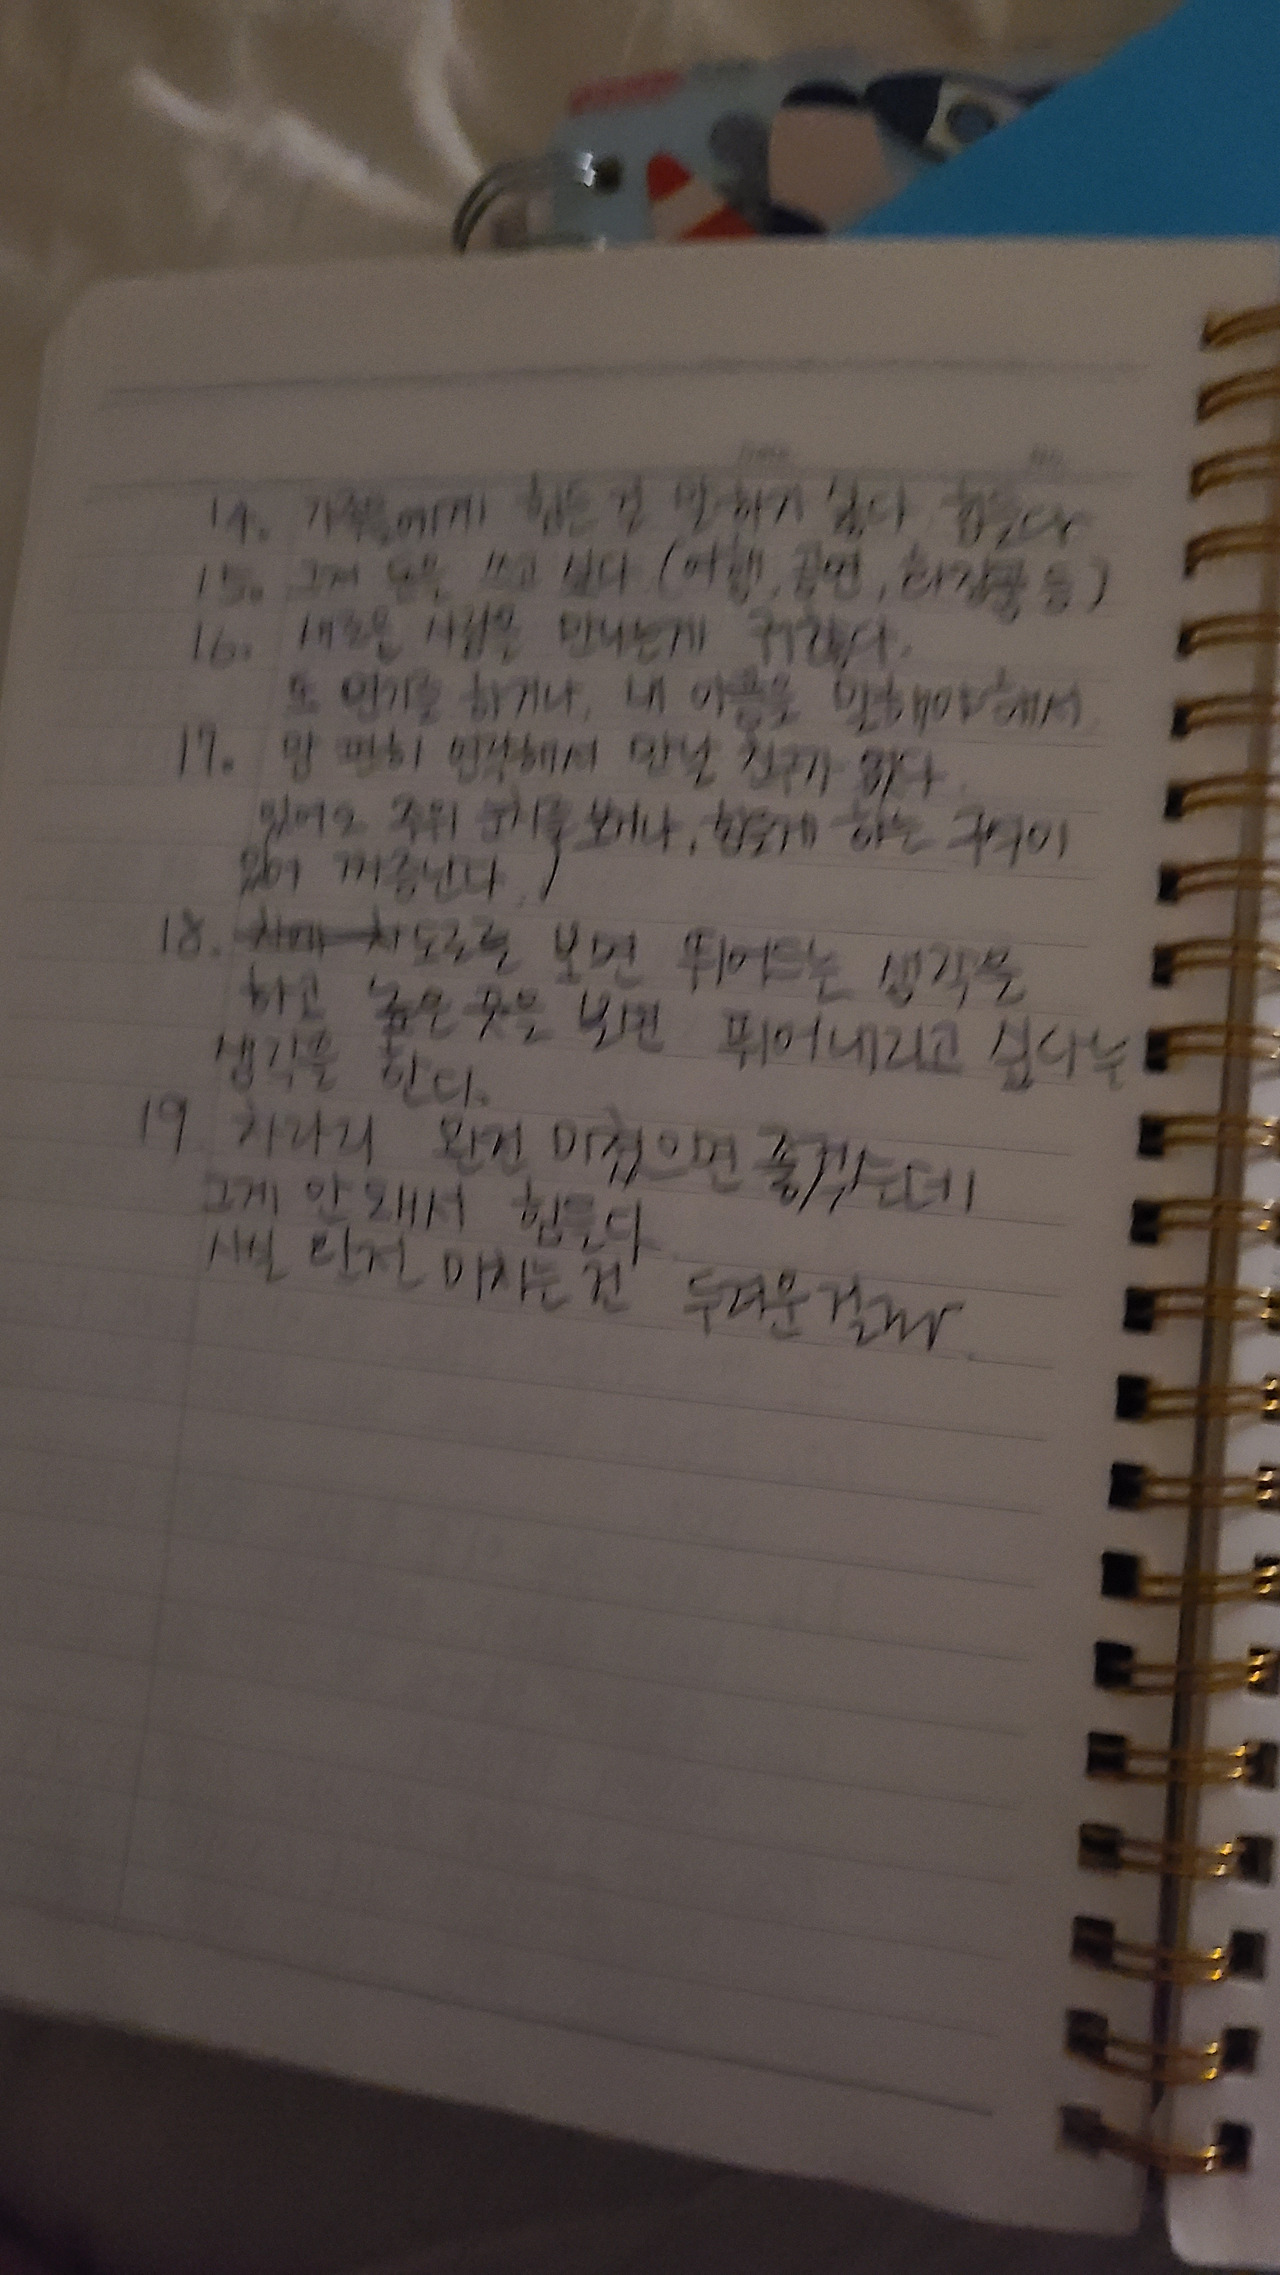 14. 가족들에게 힘든 걸 말하기 싫다 힘들다
15. 그저 돈을 쓰고 싶다 (여행, 공연, 화장품 등)
16. 새로운 사람을 만나는게 귀찮다.
또 연기를 하거나, 내 아픔을 말해야 해서.
17. 맘 편히 연락해서 만날 친구가 없다.
있어도 주위 눈치를 보거나, 힘들게 하는 구석이
있어 짜증난다.)
18. 도로를 보면 뛰어드는 생각을
하고 높은 곳을 보면 뛰어내리고 싶다는
생각을 한다.
19. 차라리 완전 미쳤으면 좋겠는데
그게 안 돼서 힘들다.
사실 완전 미치는 건 두려운 걸지도